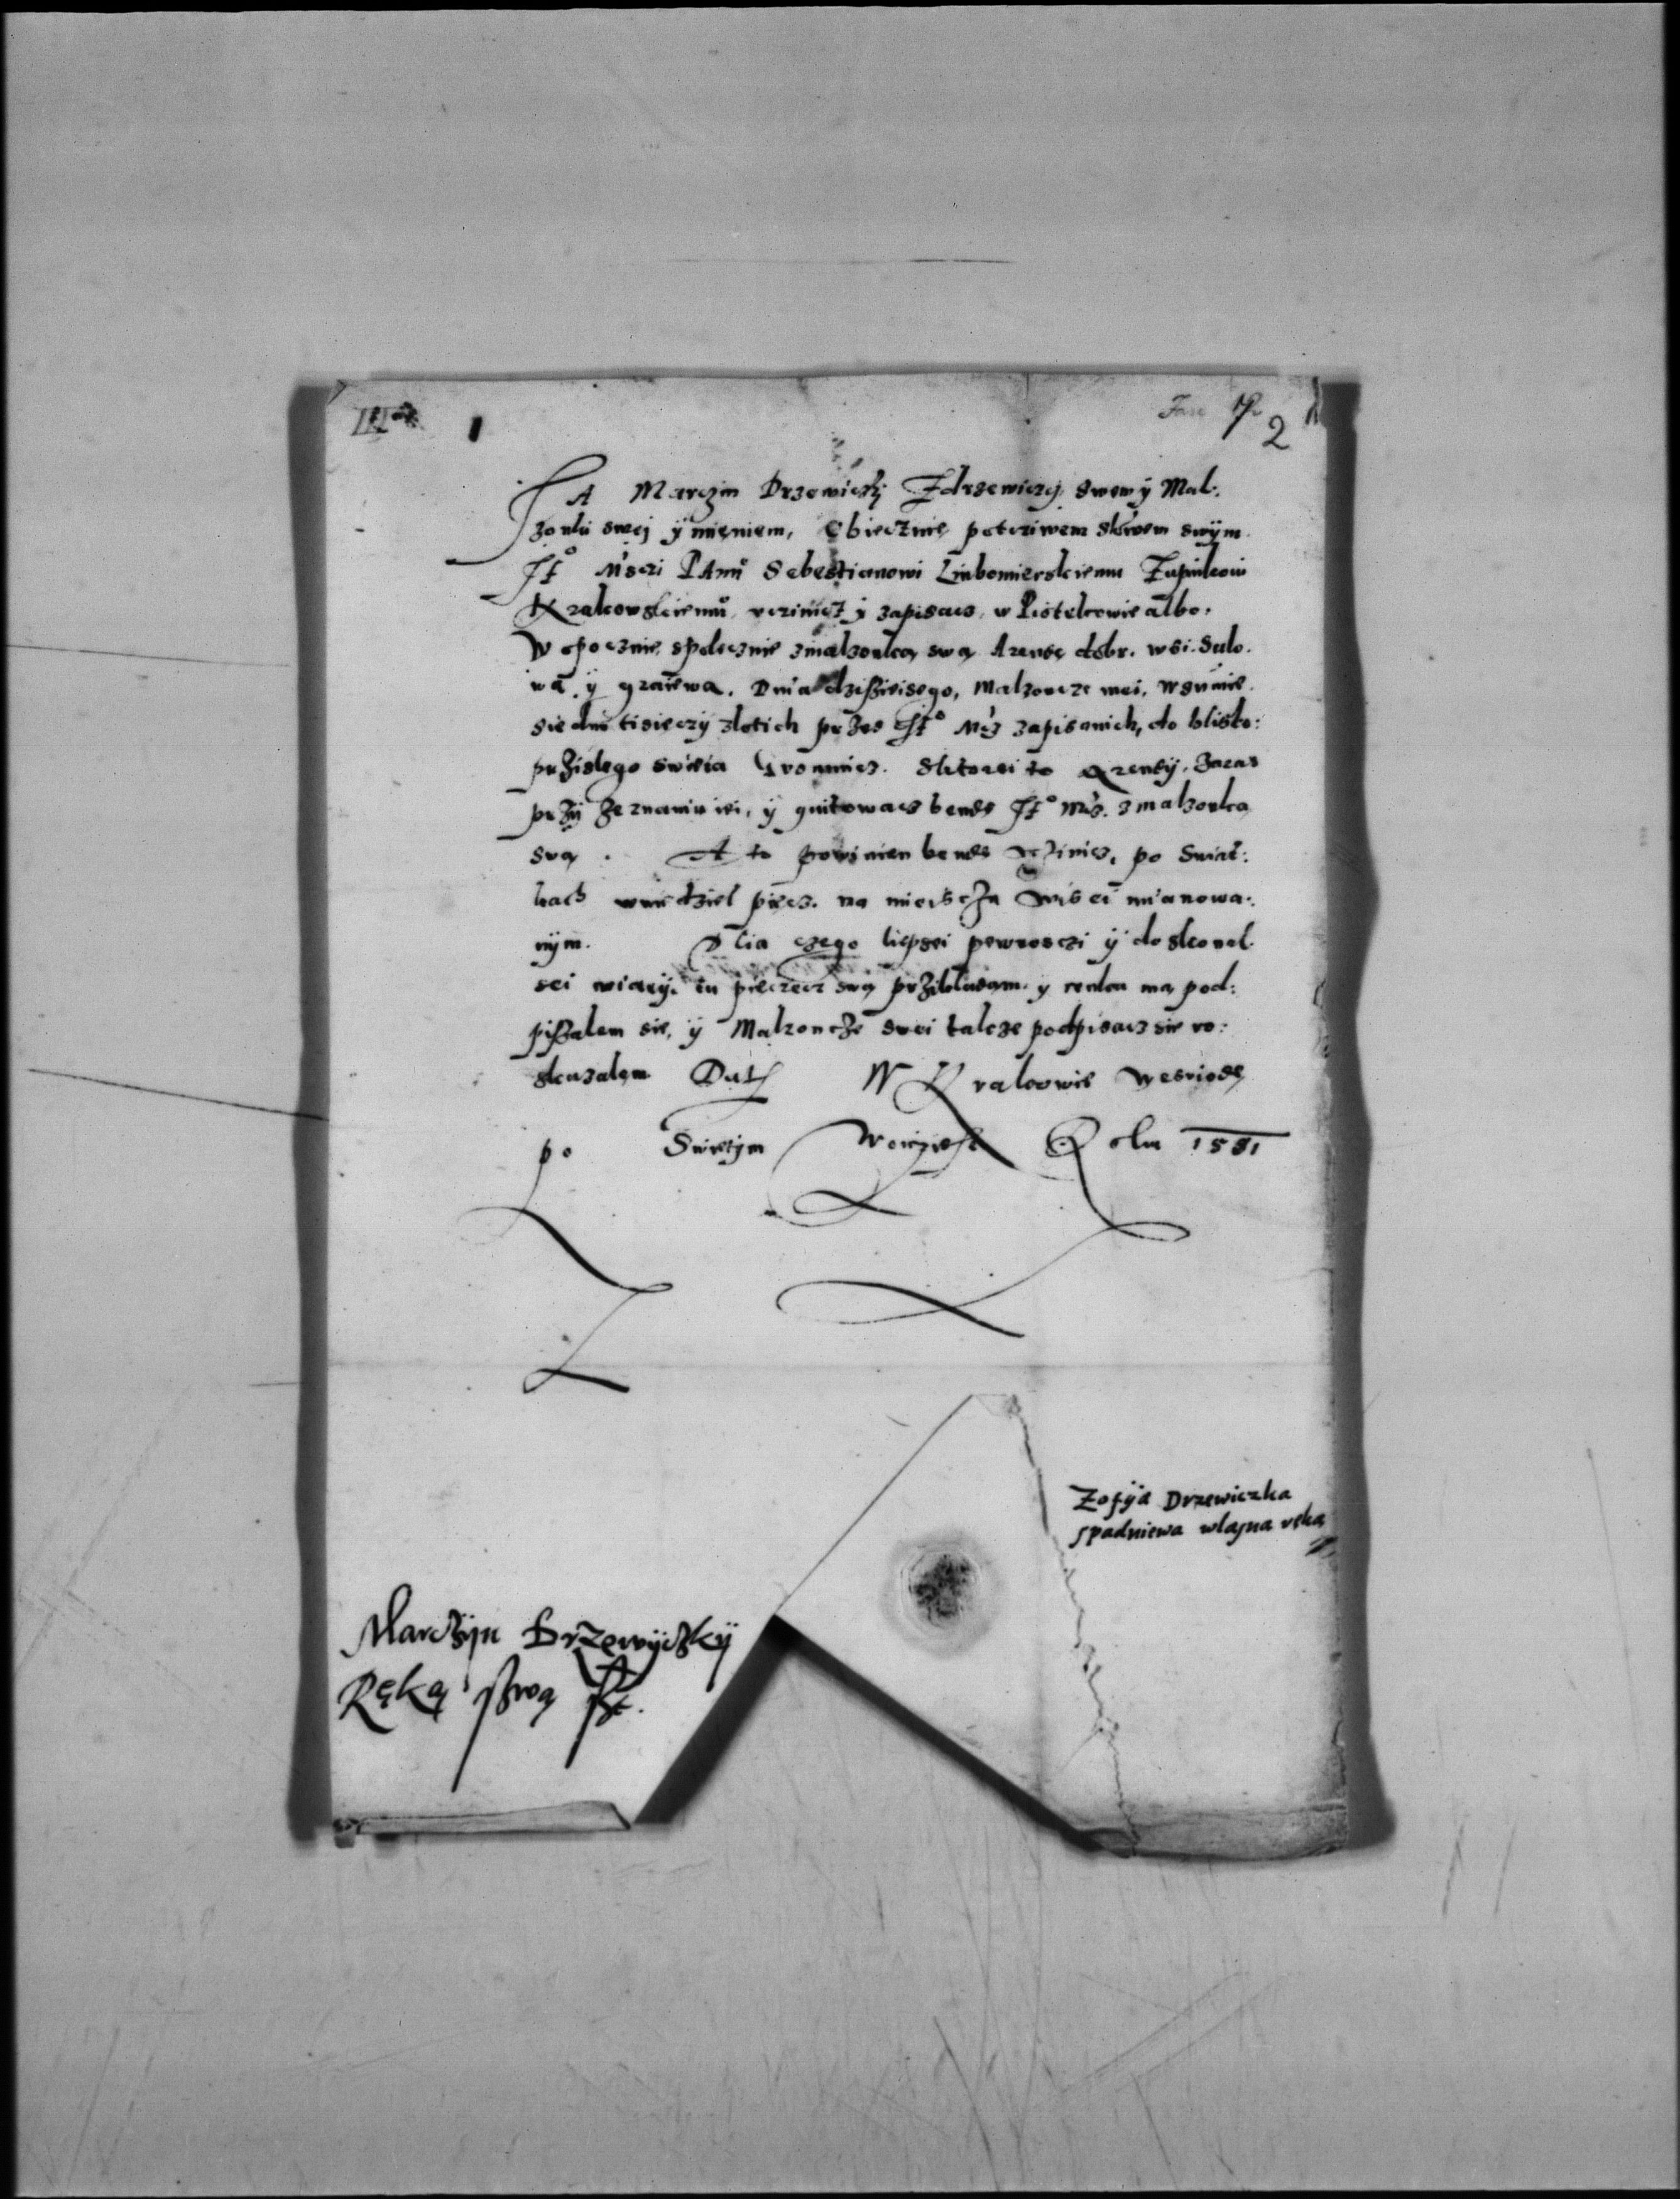 1
2
JA Marczin Drzewiczki Zdrzewiczej swem ÿ Mal:
zonki swej ÿmięniem, Obiecznię potcziwem słowem swÿm
Mści PAnu Sebestianowi Liubomierskiemu Zupnikowi
Krakowskiemu, vczinicz ÿ zapisacz, w Piotrkowie albo.
W opocznie, spolecznie zmalzonką swą Arendę dobr. wsi. Sulo.
wa ÿ graiewa. Dnia dzisßieisego, Malzoncze mei, wsumie
siedm tisieczÿ zlotich przes Mcz zapisanich, do blisko:
przislego swięta Gromnicz. Sktorei to Arendÿ, Zaraz
przÿ Zeznaniu iei, ÿ quitowacz bende Mcz. zmalzonką
swą. A to powinien bende vczinicz, po Swiat:
kach wnie dziel pięcz. na mieisczu wisei mianowa:
nÿm. Dlia czego liepsei pewnosczi ÿ doskonal
sei wiarÿ, tu pieczecz swą prziliusam. y renką mą pod:
pißalem sie, ÿ Malzoncze swei takze podpisacz sie ro:
skazalem Dat W Krakowie Wesriodę
po Swietÿm Woiczieße Roku 1581
Zofÿa Drzewiczka
spadniewa wlasna ręka
Marczÿn Drzewÿczkÿ
Ręką swą